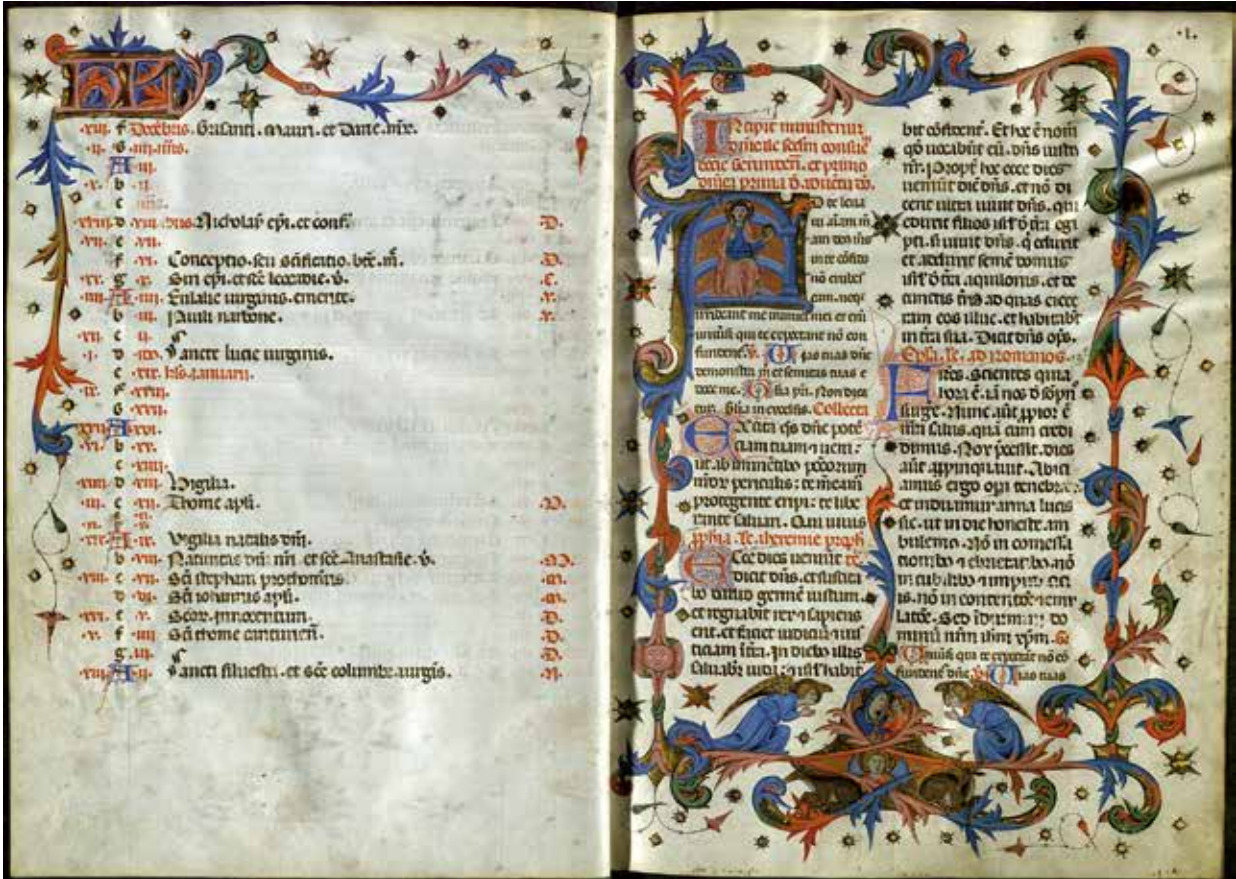 KL
.xiii. f Decēbris. Grisanti. Mauri. et Darie. mr̄.
.ii. G .iiii. nōs.
A .iii.
.x. b .ii.
c nōs.
.xviii. d .viii. idus. Nicholay ep̄i. et conf. .D.
.vii. e .vii.
f .vi. Conceptio. seu sc̄ificatio. bēe. m̄. .D.
.xv. g .v. Sm̄ ep̄i. et sc̄e leocadie. v̄. .C.
.iiii. A .iiii. Eulalie uirginis. emerite.
b .iii. Pauli narbone.
.xii. c .ii.
.i. d idus. Sancte lucie uirginis.
e .xix. kls. ianuarii.
.ix. f .xviii.
G .xvii.
.xvii. A .xvi.
.vi. b .xv.
c .xiiii.
.xiiii. d .xiii. Vigilia.
.iii. e .xii. Thome apl̄i. .D.
.xix. A .ix. Vigilia natalis dn̄i.
b .viii. Natiuitas dn̄i nr̄i. et sc̄e. Anastasie. v̄. .M.
.viii. c .vii. Sc̄i stephani prothom̄ris. .m.
d .vi. Sc̄i iohannis apl̄i. .m.
.xvi. e .v. Sc̄or. innocentum. .D.
.v. f .iiii. Sc̄i thome cantuarien̄. .D.
g .iii. .D.
.xiii. A .ii. Sancti siluestri. et sc̄e columbe. uirgīs.
.I.
Incipit
et primo
dn̄ica prima d̄. aduentu dn̄i.
AD te leua
ui aīam m̄
am deus m̄s
in te cōfido
nō erubes
cam. neq̄
irrideant me inimici mei et eni
uniūsi qui te expectant nō con
fundent̄. v̄. Uias tuas dn̄e
demonstra m̄ et semitas tuas e
doce me. Gl̄ia pr̄i. Non dica
tur. Gl̄ia in excelsis. Collecta
EXcita q̄s dn̄e potē
ciam tuam et ueni:
ut ab imminētibꝰ pcc̄orum
nr̄or periculis: te mēam
protegente eripi: te libe
rante saluari. Qui uiuis
ꝓphīa. le. iheremie proph̄
ECce dies ueniūt
dicit dn̄s. et suscita
bo dauid germē iustum.
et regnabit rex et sapiens
erit. et faciet iudiciū et ius
ticiam ī tr̄a. In diebꝰ illis
saluabit̄ iuda: et isr̄l habita
bit cōfident̄. Et hoc ē nom̄
qd̄ uocabūt eū. dn̄s iustꝰ
nr̄. Propt̄ hoc ecce dies
ueniūt dic̄ dn̄s. et nō di
cent ultra uiuit dn̄s. qui
eduxit filios isr̄l d̄ tr̄a egi
pti. sȝ uiuit dn̄s. q̄ eduxit
et adduxit semē domus
isr̄l d̄ tr̄a aquilonis. et de
cunctis tr̄is ad quas eiece
ram eos illuc. et habitabūt
in tr̄a sua. Dicit dn̄s op̄s.
Epl̄a. le. ad romanos.
FRēs. Scientes quia
hora ē. iā nos d̄ sōpn̄
surge. Nunc aūt ꝓpior ē
nr̄a salus. quā cum credi
dimus. Nox p̄cessit. dies
aūt appinquauit. Abici
amus ergo op̄a tenebraȝ:
et induamur arma lucis
sic. ut in die honeste. am
bulemꝰ. Nō in comessa
cionibꝰ et ebrietatibꝰ. nō
in cubilibꝰ et impudici
is. nō in contentōe et emu
latōe. Sed īduimini do
minū nr̄m ih̄m xp̄m.
Uniūsi qui te expectāt nō cō
fundent̄ dn̄e. v̄. Uias tuas